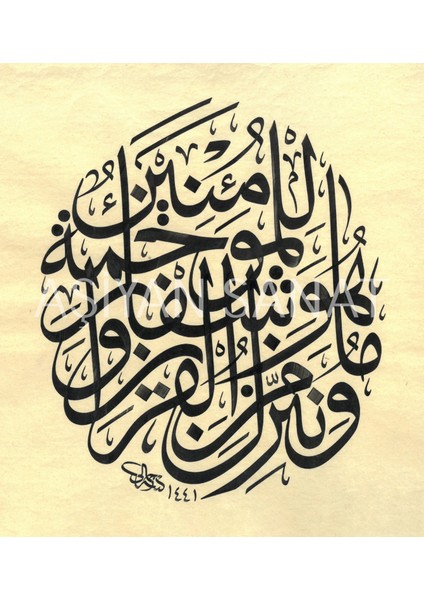 وننزل من القرآن ما هو شفاء ورحمة للمؤمنين
AŞİYAN SANAT
١٤٤١